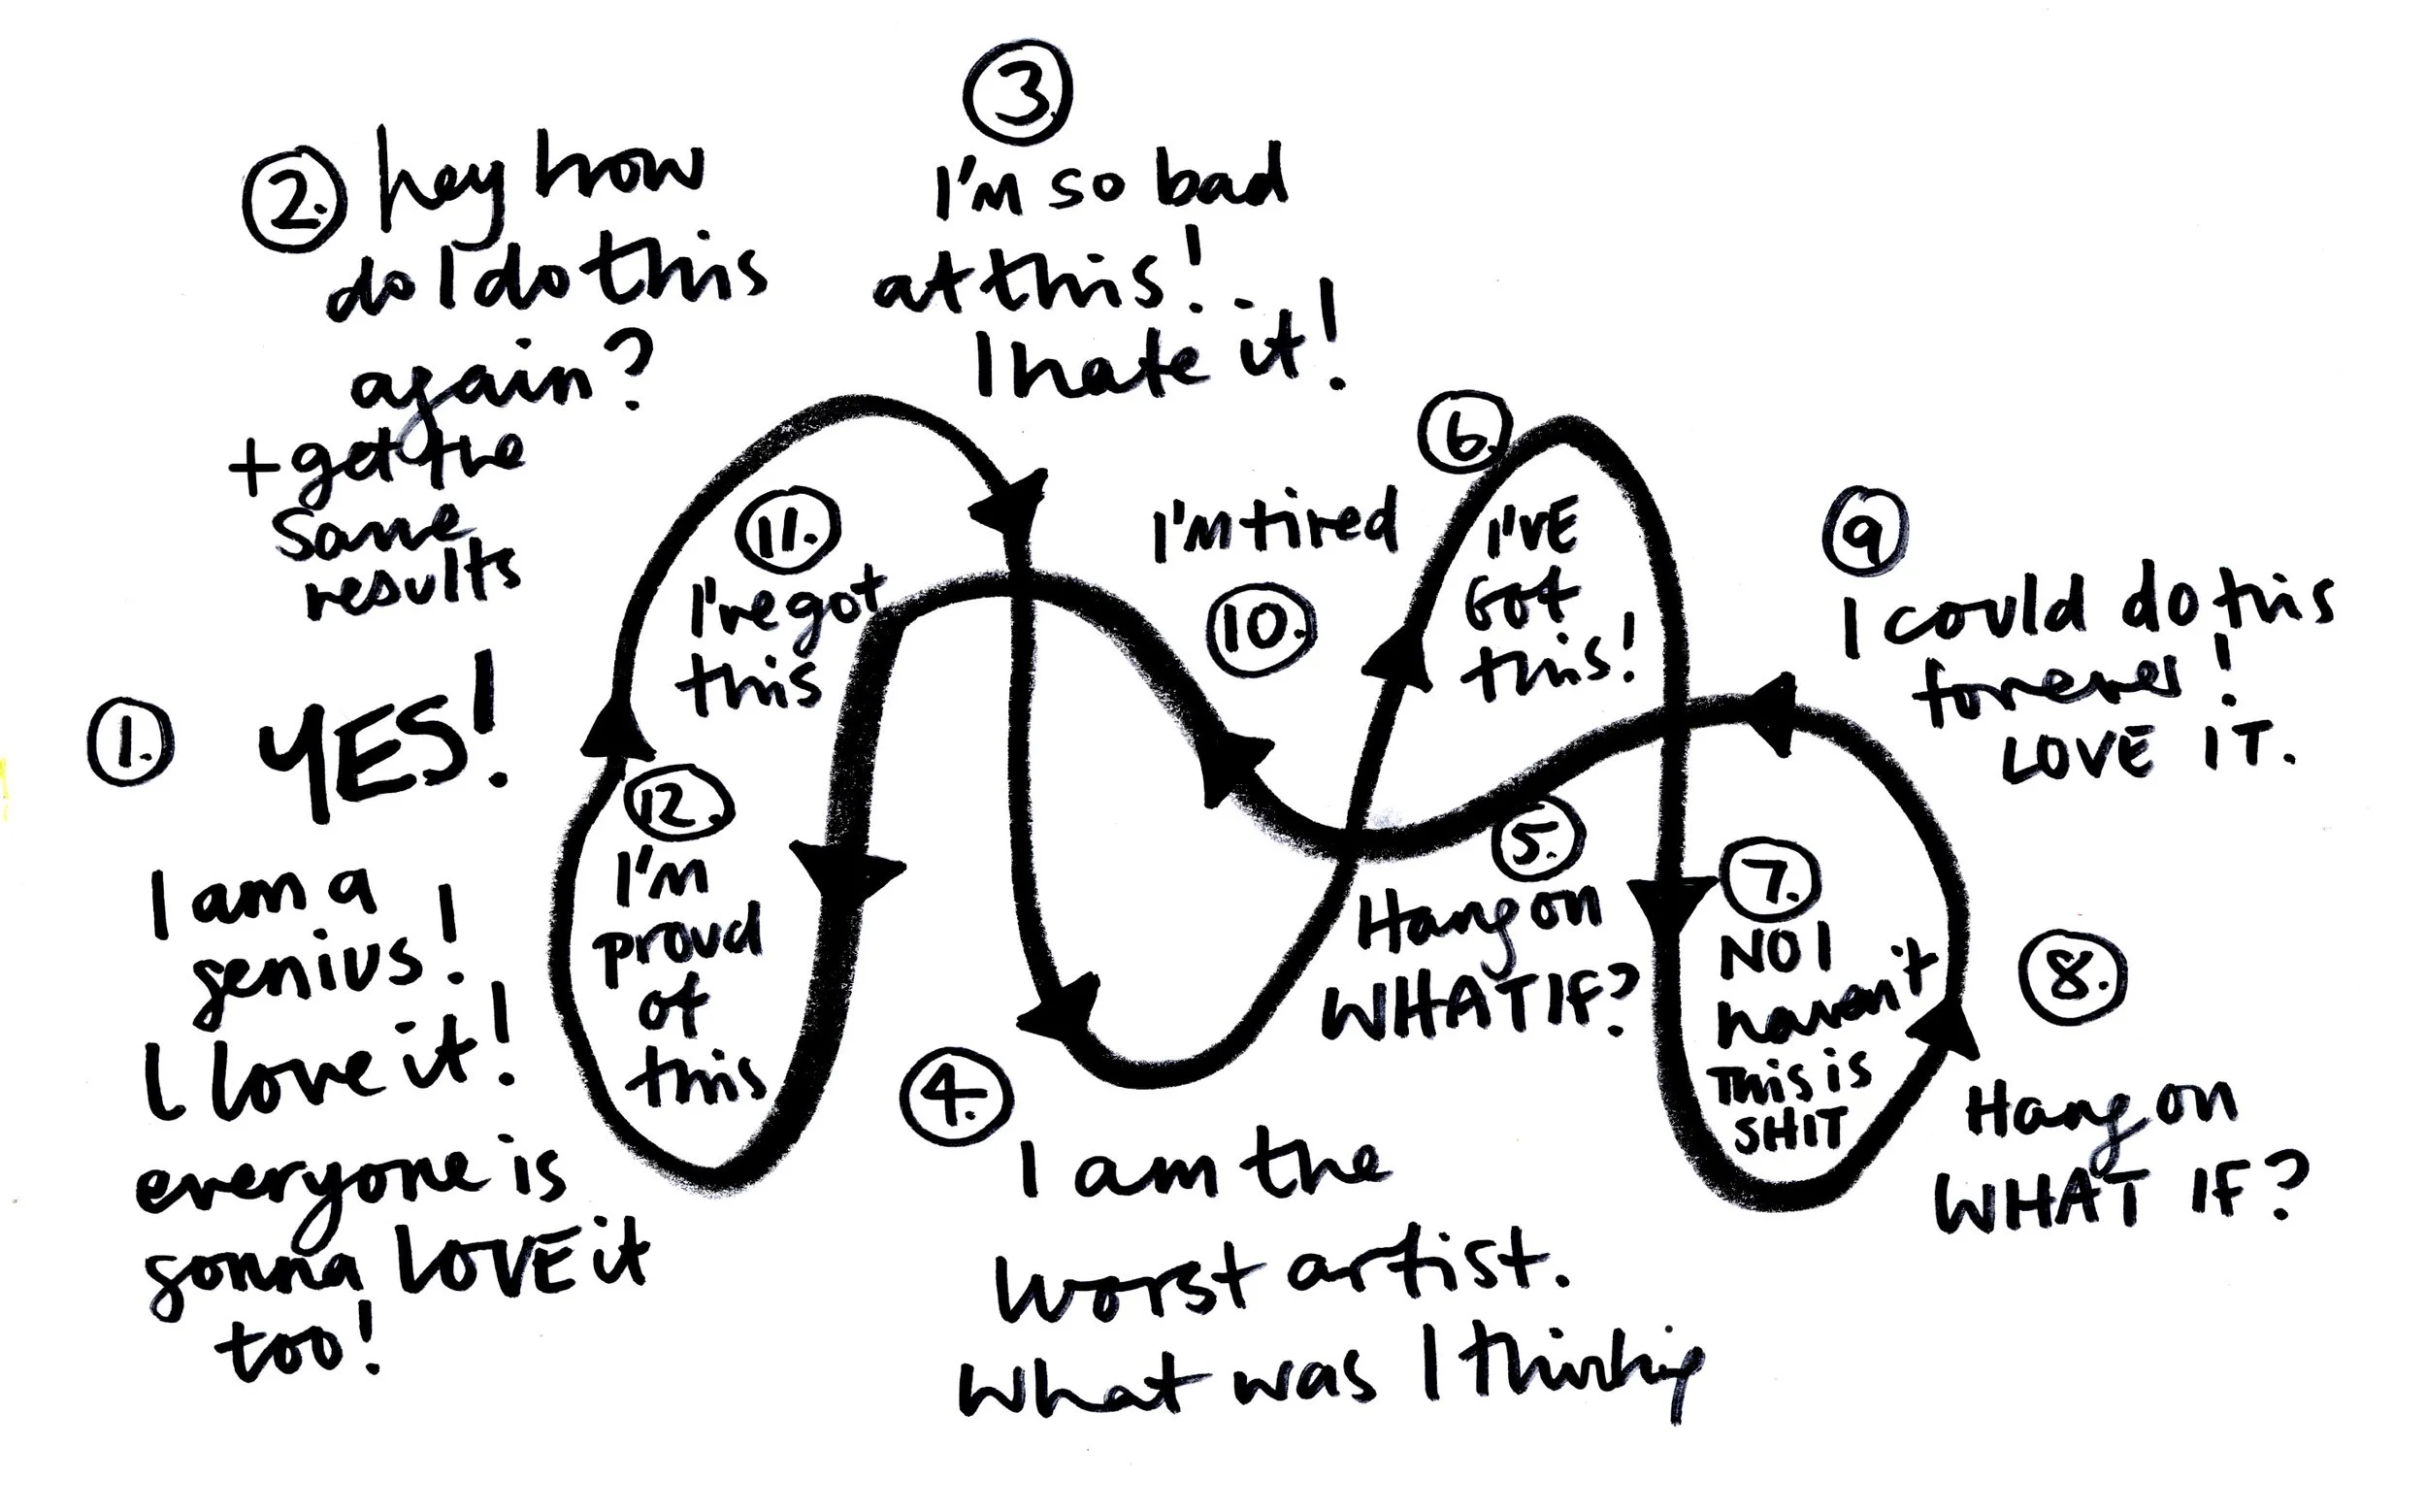 1. YES!
I am a
genius!
I love it!
everyone is
gonna LOVE it
too!
2. hey how
do I do this
again?
+ get the
same
results
3.
I'm so bad
at this!..
I hate it!
4.
I am the
worst artist.
What was I thinking
5.
Hang on
WHAT IF?
6.
I'VE
GOT
this!
7.
NO I
haven't
This is
SHIT
8.
Hang on
WHAT IF?
9
I could do this
forever!
LOVE IT.
I'm tired
10.
11.
I've got
this
12.
I'm
proud
of
this